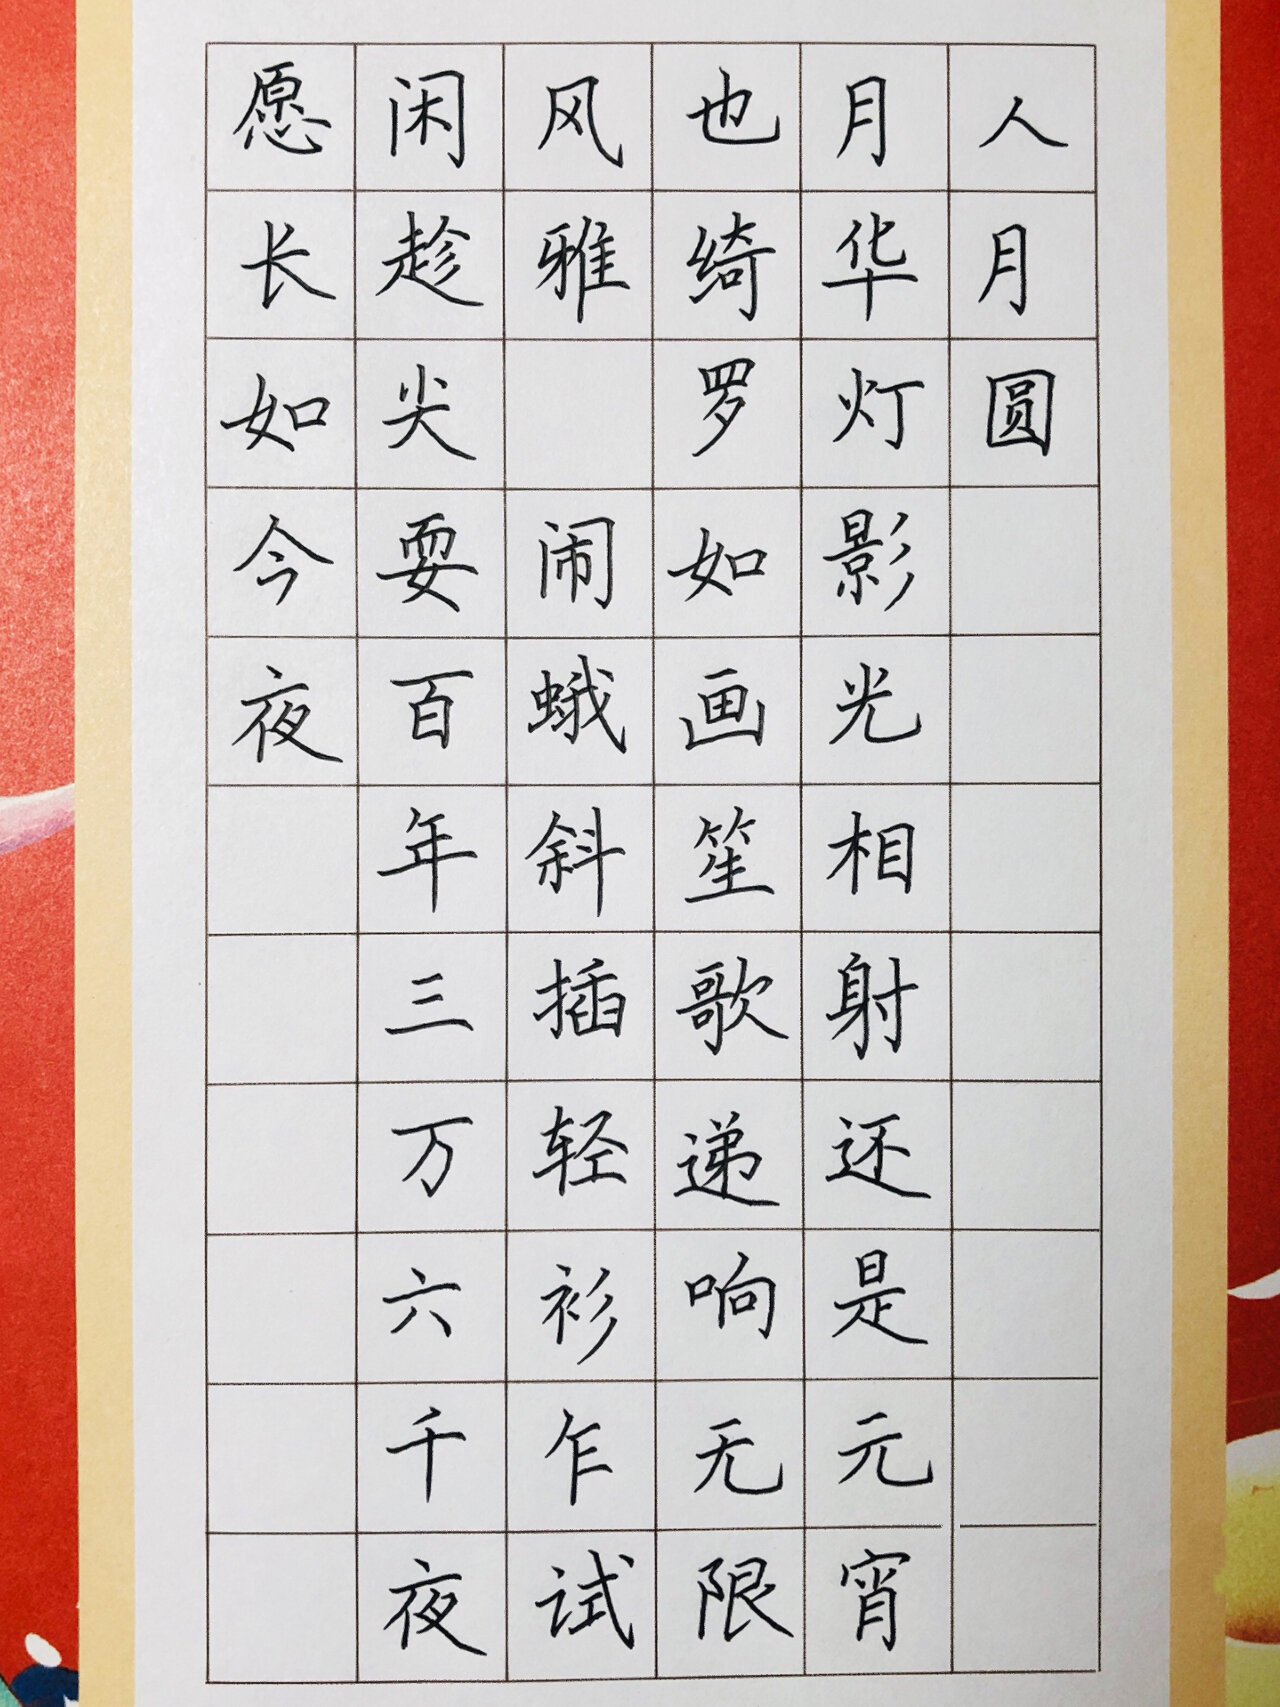 人月圆
月华灯影光相射还是元宵
也绮罗如画笙歌递响无限
风雅 闹蛾斜插轻衫乍试
闲趁尖耍百年三万六千夜
愿长如今夜